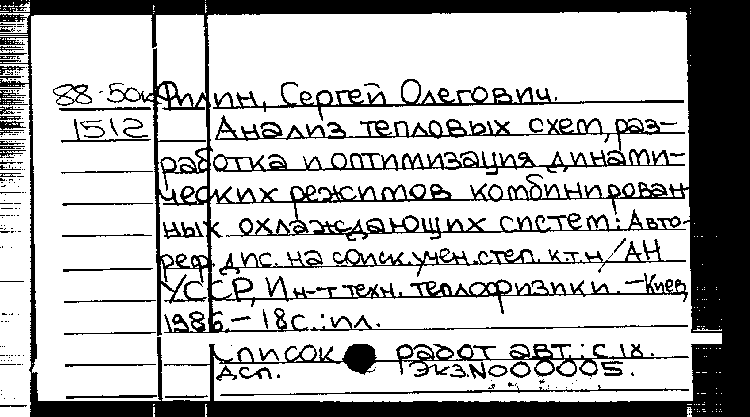 88-50к Филин, Сергей Олегович.
1512 Анализ тепловых схем, раз-
работка и оптимизация динами-
ческих режимов комбинирован-
ных охлаждающих систем: Авто-
реф. дис. на соиск. учен. степ. к.т.н / АН
УССР, Ин-т техн. теплофизики. — Киев,
1986. — 18 с. : ил.
Список работ авт.: с 18.
ДСП. Экз. № 000005.